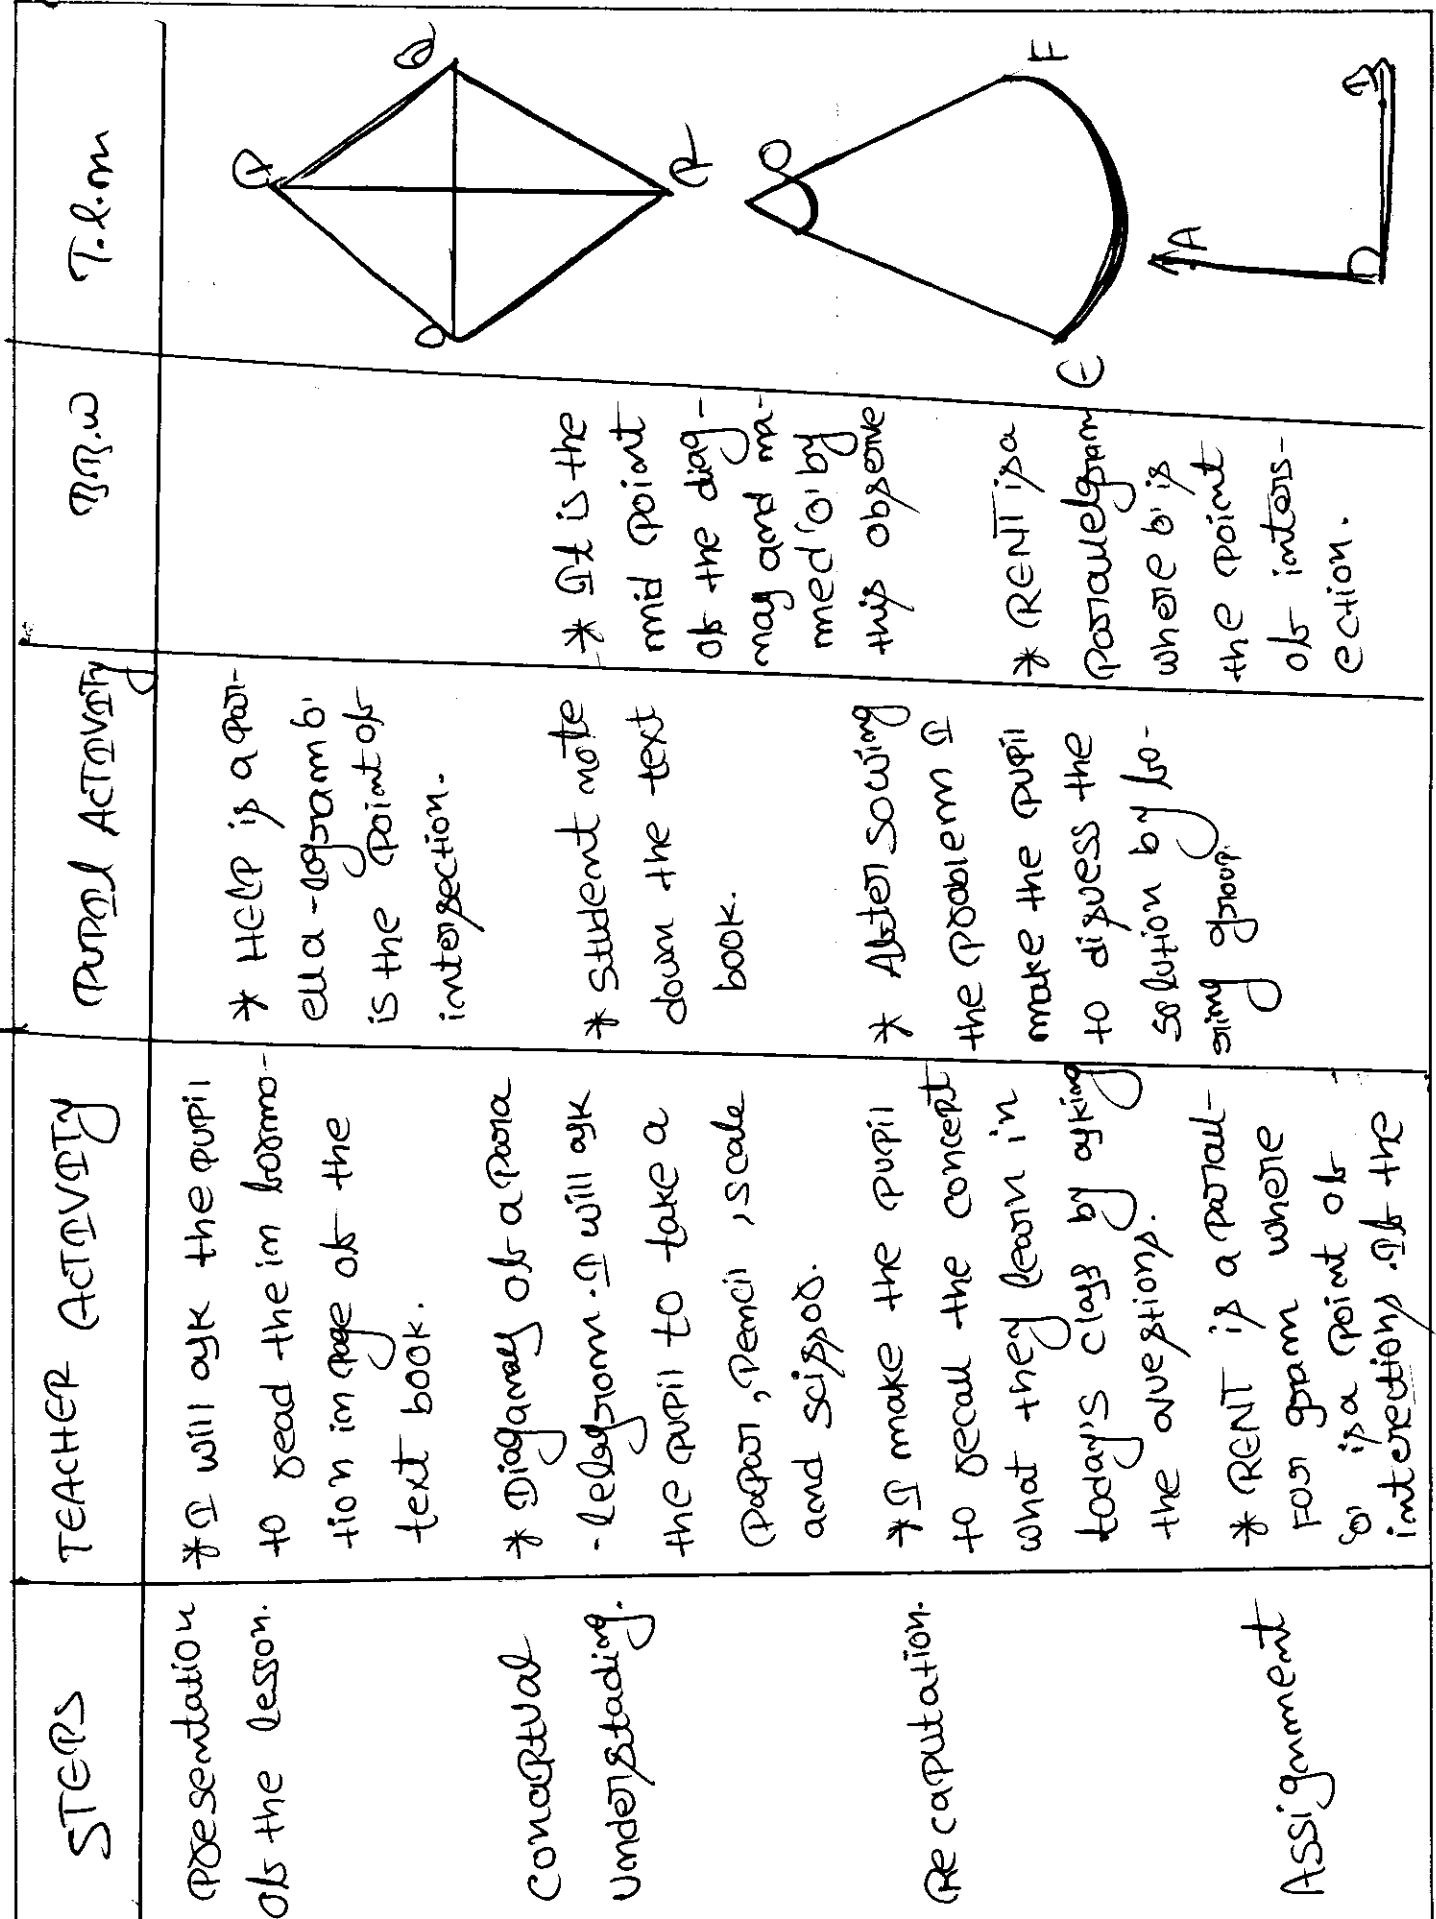 STEPS
TEACHER ACTIVITY
PUPIL ACTIVITY
BB.W
T.l.m
Presentation
of the lesson.
* I will ask the pupil
to read the in forma-
tion in page of the
text book.
* HELP is a par-
ella-logram 'o'
is the point of
intersection.
Conaptual
Understading.
* Diaganay of a para
-lelogram. I will ask
the pupil to take a
papar, Pencil, scale
and scissor.
* Student note
down the text
book.
* It is the
mid point
of the diag-
may and na-
med 'o' by
this observe
Recaputation.
* I make the pupil
to recall the concept
what they learn in
today's class by asking
the questions.
* After soluing
the problem I
make the pupil
to disuess the
solution by fo-
ring group.
Assignment
* RENT is a parall-
gram where
'o' is a point of
interections. If the
* RENT is a
Parallelgram
where 'o' is
the point
of inters-
ection.
P
Q
O
R
O
E
F
A
B